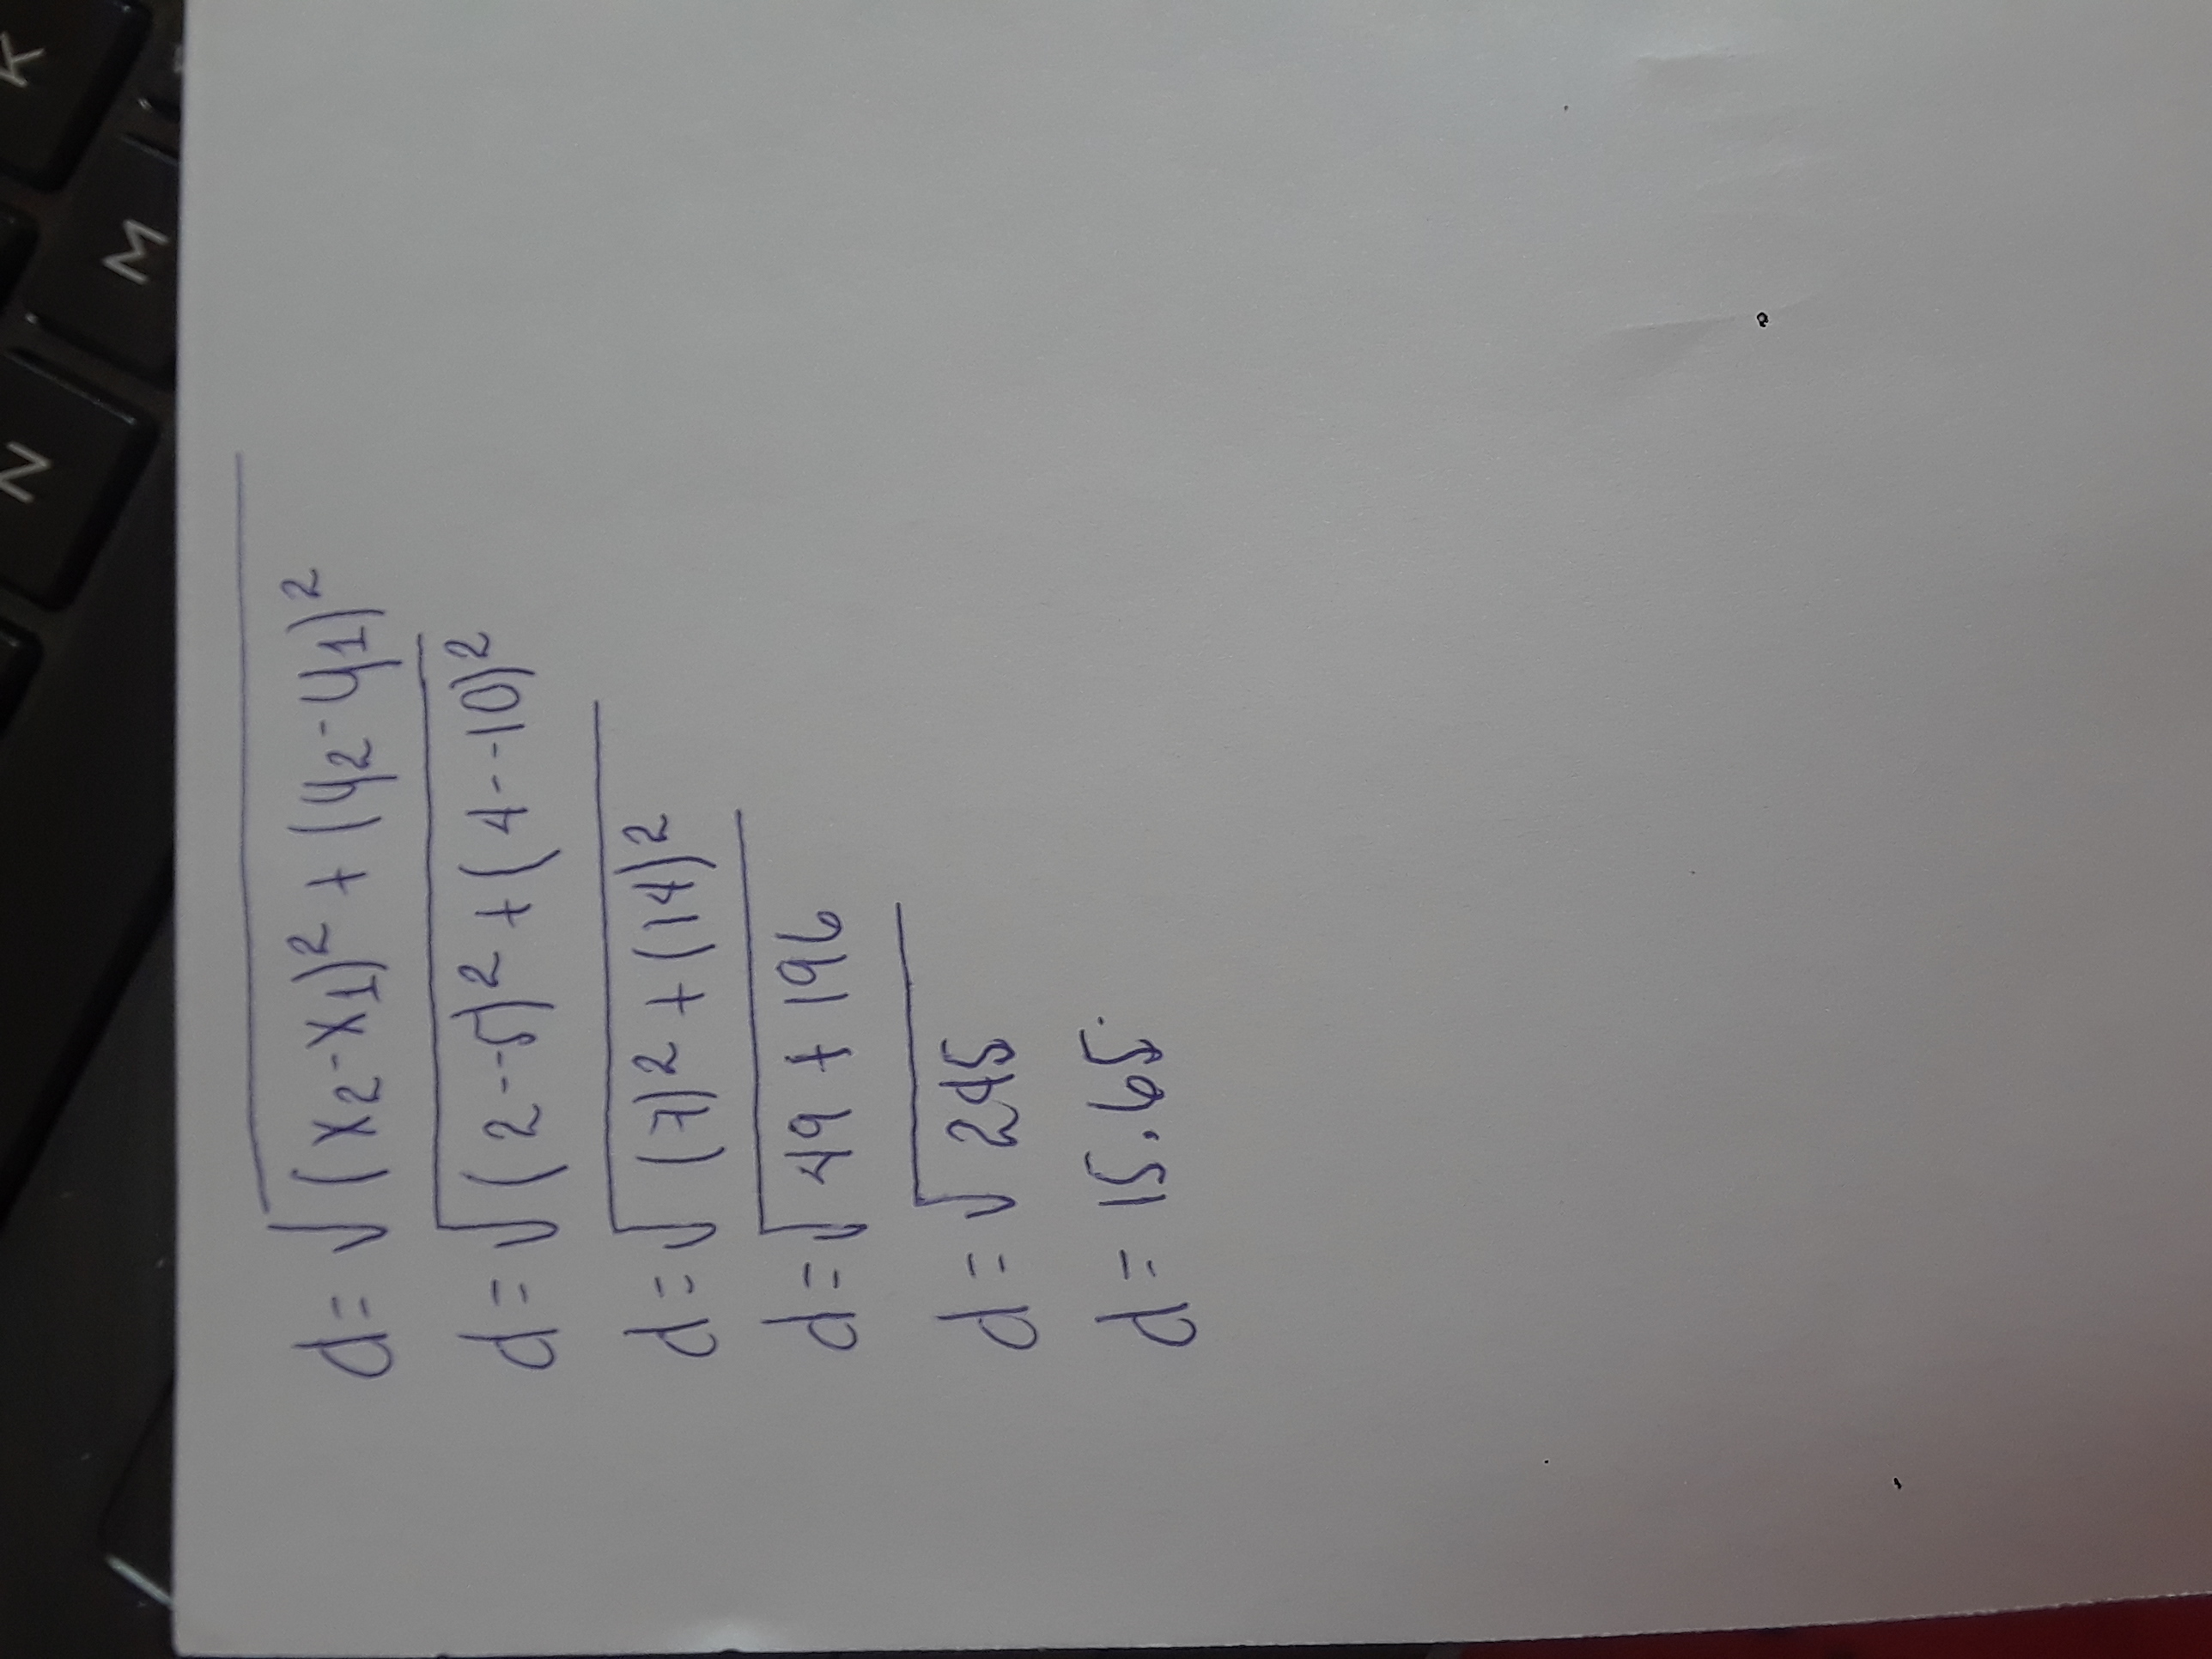 d = √(x₂-x₁)² + (y₂-y₁)²
d = √(2--5)² + (4--10)²
d = √(7)² + (14)²
d = √49 + 196
d = √245
d = 15.65
K
M
N